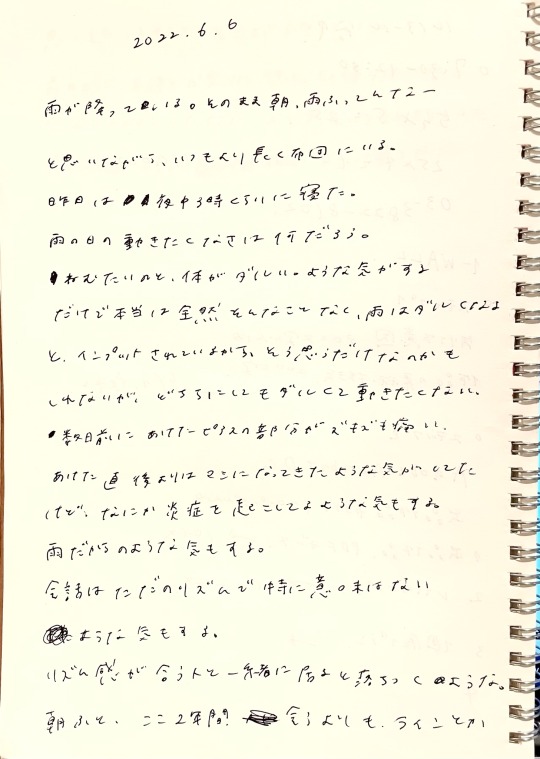 2022.6.6
雨が降っている。そのまま朝、雨ふってんなー
と思いながら、いつもより長く布団にいる。
昨日は夜中3時くらいに寝た。
雨の日の動きたくなさは何だろう。
ねむたいのと、体がダルい。ような気がする
だけで本当は全然そんなことなく、雨はダルくなる
と、インプットされているから、そう思うだけなのかも
しれないが、どちらにしてもダルくて動きたくない。
数日前にあけたピアスの部分がズキズキ痛い。
あけた直後よりはマシになってきたような気がしてた
けど、なにか炎症を起こしてるような気もする。
雨だからのような気もする。
会話はただのリズムで特に意味はない
ような気もする。
リズム感が合う人と一緒に居ると落ちつくような。
朝ふと、ここ2年間 会うよりも、ラインとか